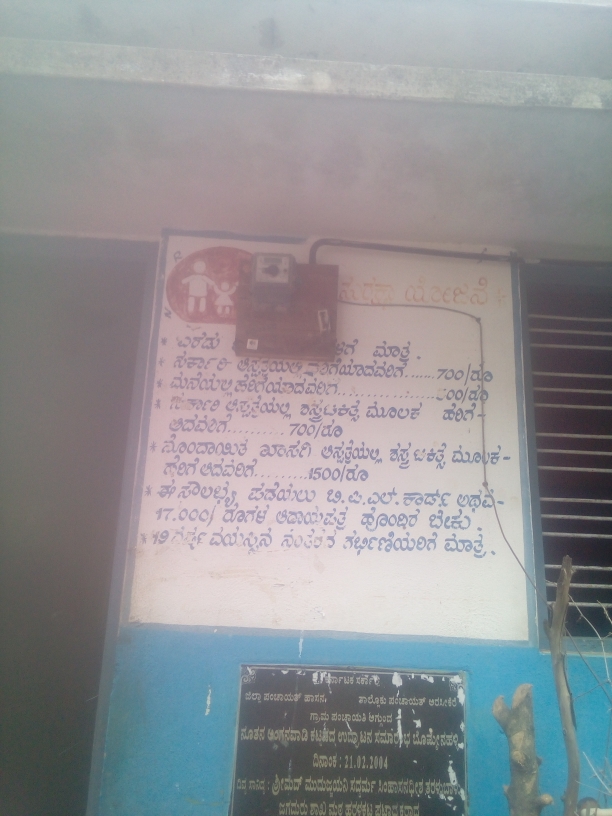 ಸುರಕ್ಷಾ ಯೋಜನೆ
* ಎರಡು ಳಿಗೆ ಮಾತ್ರ.
* ಸರ್ಕಾರಿ ಆಸ್ಪತ್ರೆಯಲ್ಲಿ ಹೆರಿಗೆಯಾದವರಿಗೆ.......700/ರೂ
* ಮನೆಯಲ್ಲಿ ಹೆರಿಗೆಯಾದವರಿಗೆ............500/ರೂ
* ಸರ್ಕಾರಿ ಆಸ್ಪತ್ರೆಯಲ್ಲಿ ಶಸ್ತ್ರಚಿಕಿತ್ಸೆ ಮೂಲಕ ಹೆರಿಗೆ-
ಆದವರಿಗೆ..........700/ರೂ
* ನೊಂದಾಯಿತ ಖಾಸಗಿ ಆಸ್ಪತ್ರೆಯಲ್ಲಿ ಶಸ್ತ್ರಚಿಕಿತ್ಸೆ ಮೂಲಕ-
ಹೆರಿಗೆ ಆದವರಿಗೆ.........1500/ರೂ
* ಈ ಸೌಲಭ್ಯ ಪಡೆಯಲು ಬಿ.ಪಿ.ಎಲ್.ಕಾರ್ಡ್ ಅಥವ-
17.000/ ರೂಗಳ ಆದಾಯಪತ್ರ ಹೊಂದಿರ ಬೇಕು.
* 19 ವರ್ಷ ವಯಸ್ಸಿನ ನಂತರದ ಗರ್ಭಿಣಿಯರಿಗೆ ಮಾತ್ರ.
ಕರ್ನಾಟಕ ಸರ್ಕಾರ
ಜಿಲ್ಲಾ ಪಂಚಾಯತ್ ಹಾಸನ ತಾಲ್ಲೂಕು ಪಂಚಾಯತ್ ಅರಸೀಕೆರೆ
ಗ್ರಾಮ ಪಂಚಾಯತಿ ಅಗ್ಗುಂದ
ನೂತನ ಅಂಗನವಾಡಿ ಕಟ್ಟಡದ ಉದ್ಘಾಟನ ಸಮಾರಂಭ ಬೊಮ್ಮೇನಹಳ್ಳಿ
ದಿನಾಂಕ : 21.02.2004
ದಿವ್ಯ ಸಾನಿಧ್ಯ : ಶ್ರೀಮದ್ ಮುದುಜ್ಜಯಿನಿ ಸದ್ಧರ್ಮ ಸಿಂಹಾಸನಾಧೀಶ
ಜಗದ್ಗುರು ಶಾಖಾ ಮಠ